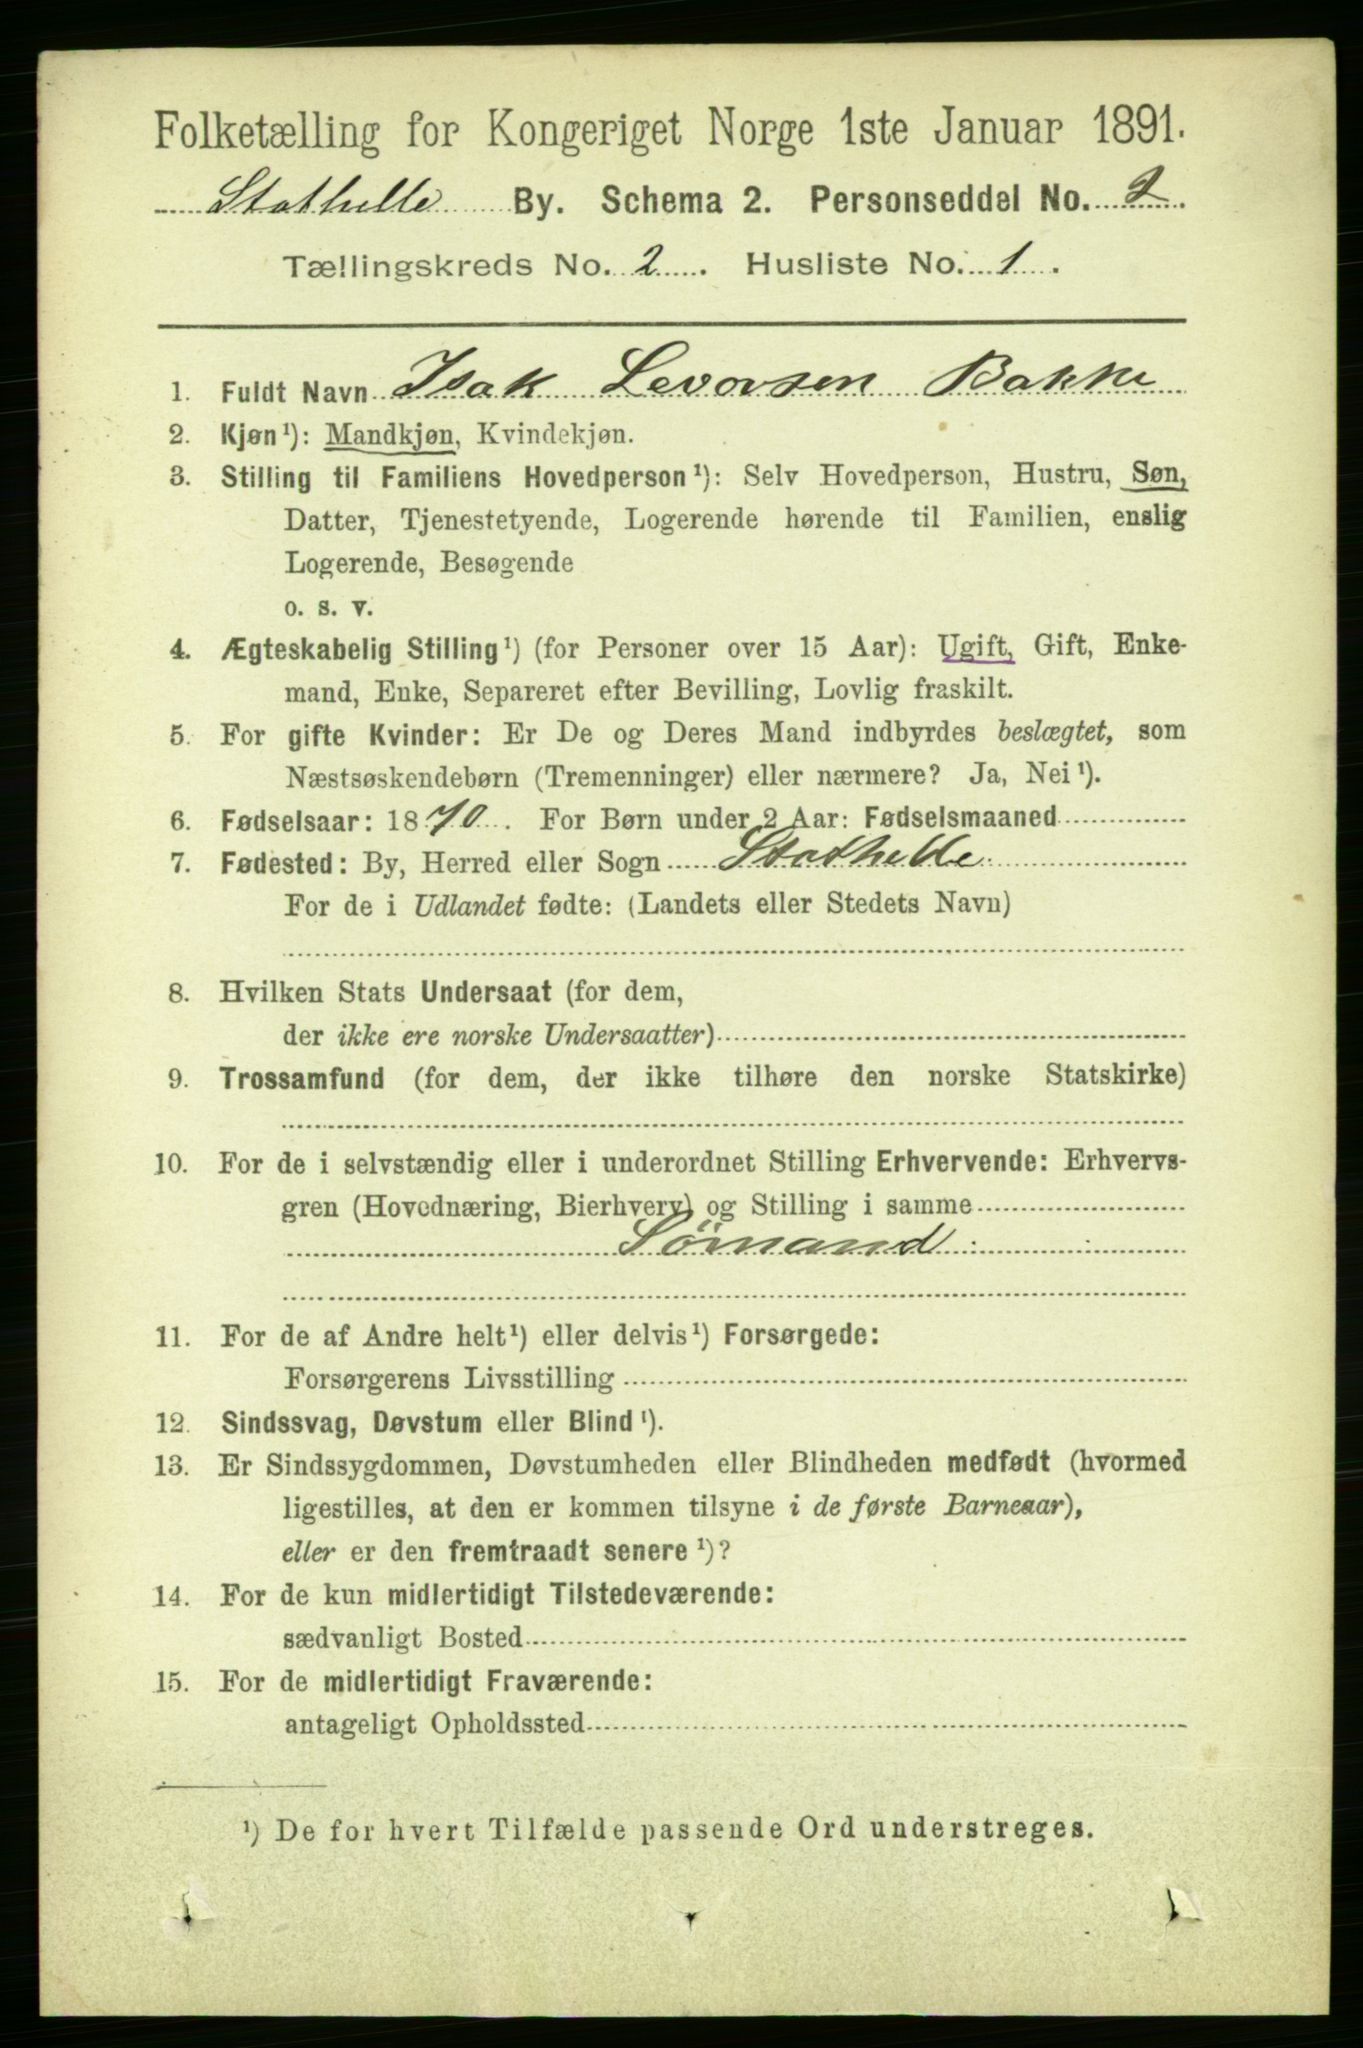 Folketælling for Kongeriget Norge 1ste Januar 1891.
Stathelle By. Schema 2. Personseddel No. 2.
Tællingskreds No. 2. Husliste No. 1.
1. Fuldt Navn Isak Levorsen Bakke
2. Kjøn¹): Mandkjøn, Kvindekjøn.
3. Stilling til Familiens Hovedperson¹): Selv Hovedperson, Hustru, Søn,
Datter, Tjenestetyende, Logerende hørende til Familien, enslig
Logerende, Besøgende
o. s. v.
4. Ægteskabelig Stilling¹) (for Personer over 15 Aar): Ugift, Gift, Enke-
mand, Enke, Separeret efter Bevilling, Lovlig fraskilt.
5. For gifte Kvinder: Er De og Deres Mand indbyrdes beslægtet, som
Næstsøskendebørn (Tremenninger) eller nærmere? Ja, Nei¹).
6. Fødselsaar: 1870. For Børn under 2 Aar: Fødselsmaaned
7. Fødested: By, Herred eller Sogn Stathelle
For de i Udlandet fødte: (Landets eller Stedets Navn)
8. Hvilken Stats Undersaat (for dem,
der ikke ere norske Undersaatter)
9. Trossamfund (for dem, der ikke tilhøre den norske Statskirke)
10. For de i selvstændig eller i underordnet Stilling Erhvervende: Erhvervs-
gren (Hovednæring, Bierhverv) og Stilling i samme
Sömand
11. For de af Andre helt¹) eller delvis¹) Forsørgede:
Forsørgerens Livsstilling
12. Sindssvag, Døvstum eller Blind¹).
13. Er Sindssygdommen, Døvstumheden eller Blindheden medfødt (hvormed
ligestilles, at den er kommen tilsyne i de første Barneaar),
eller er den fremtraadt senere¹)?
14. For de kun midlertidigt Tilstedeværende:
sædvanligt Bosted
15. For de midlertidigt Fraværende:
antageligt Opholdssted
¹) De for hvert Tilfælde passende Ord understreges.